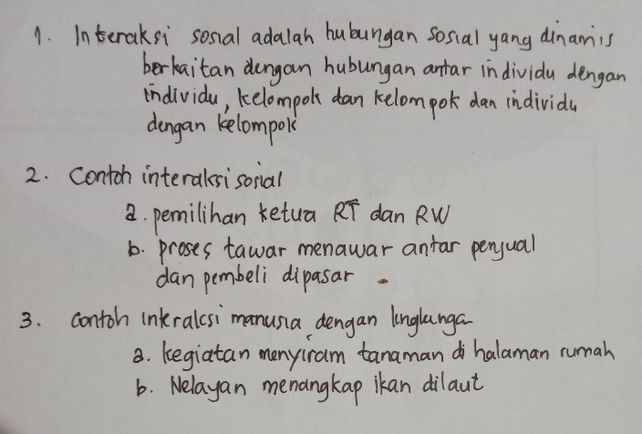 1. Interaksi sosial adalah hubungan sosial yang dinamis
berkaitan dengan hubungan antar individu dengan
individu, kelompok dan kelompok dan individu
dengan kelompok
2. Contoh interaksi sosial
a. pemilihan ketua RT dan RW
b. proses tawar menawar antar penjual
dan pembeli dipasar
3. contoh interaksi manusia dengan lingkunga
a. kegiatan menyiram tanaman di halaman rumah
b. Nelayan menangkap ikan dilaut